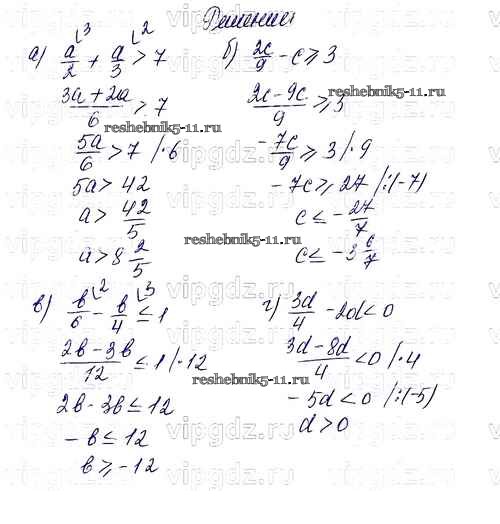 Решение
а) a/2 + a/3 > 7
(3a + 2a)/6 > 7
5a/6 > 7 /·6
5a > 42
a > 42/5
a > 8 2/5
б) 2c/9 - c ≥ 3
(2c - 9c)/9 ≥ 3
-7c/9 ≥ 3 /·9
-7c ≥ 27 /:(-7)
c ≤ -27/7
c ≤ -3 6/7
в) b/6 - b/4 ≤ 1
(2b - 3b)/12 ≤ 1 /·12
2b - 3b ≤ 12
-b ≤ 12
b ≥ -12
г) 3d/4 - 2d < 0
(3d - 8d)/4 < 0 /·4
-5d < 0 /:(-5)
d > 0
reshebnik5-11.ru
reshebnik5-11.ru
reshebnik5-11.ru
reshebnik5-11.ru
vipgdz.ru